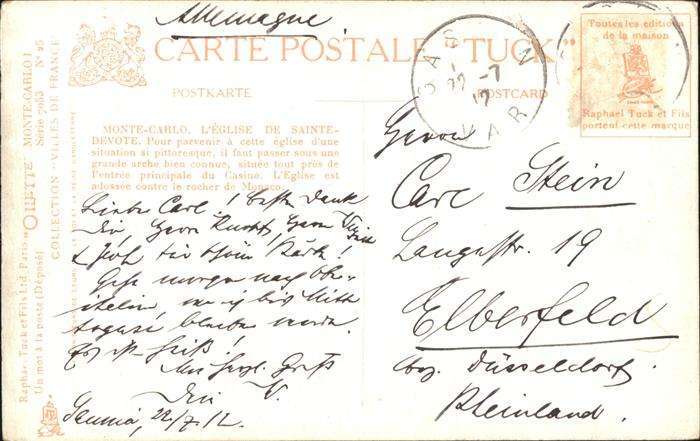 Allemagne
CARTE POSTALE "TUCK"
POSTKARTE
POSTCARD
Toutes les éditions
de la maison
Raphael Tuck et Fils
portent cette marque
MONTE-CARLO. L'ÉGLISE DE SAINTE-
DEVOTE. Pour parvenir à cette église d'une
situation si pittoresque, il faut passer sous une
grande arche bien connue, située tout près de
l'entrée principale du Casino. L'Eglise est
adossée contre le rocher de Monaco.
Lieber Carl! besten Dank
Dir, Herrn
für schöne Karte!
Gehe morgen nach Ober-
italien, wo ich bis
bleiben werde.
Es ist heiß!
Mit herzl. Gruß
Dein V.
22/7.12.
Herrn
Carl Stein
Langestr. 19
Elberfeld
bez. Düsseldorf.
Rheinland.
22-7
12
VAR
Raphael Tuck et Fils Ltd. Paris "OILETTE" MONTE-CARLO I
Série 963 No 95
Un mot à la poste (Déposé)
COLLECTION "VILLES DE FRANCE"